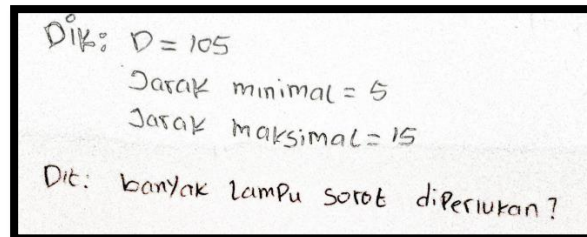 Dik: D = 105
Jarak minimal = 5
Jarak maksimal = 15
Dit: banyak lampu sorot diperlukan?